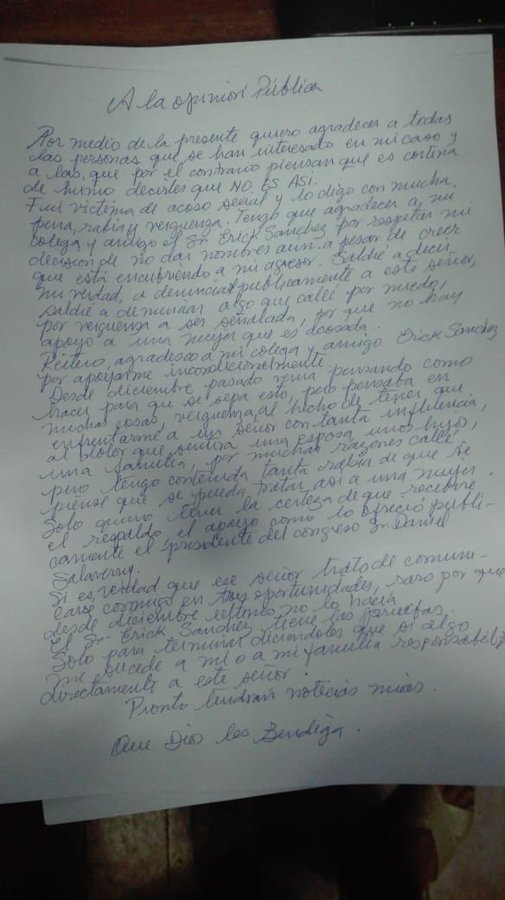 A la opinión Pública
Por medio de la presente quiero agradecer a todas
las personas que se han interesado en mi caso y
a las, que por el contrario piensan que es cortina
de humo decirles que NO ES ASI.
Fui victima de acoso sexual y lo digo con mucha
pena, rabia y verguenza. Tengo que agradecer a mi
colega y amigo el Sr. Erick Sánchez por respetar mi
decision de no dar nombres aun a pesar de creer
que está encubriendo a mi agresor. Saldré a decir
mi verdad, a denunciar publicamente a este señor,
saldré a denunciar algo que callé por miedo,
por verguenza a ser señalada, por que no hay
apoyo a una mujer que es acosada.
Reitero, agradesco a mi colega y amigo Erick Sánchez
por apoyarme incondicionalmente
Desde diciembre pasado venia pensando como
hacer para que se sepa esto, pero pensaba en
muchas cosas, verguenza, al hecho de tener que
enfrentarme a un señor con tanta influencia,
al dolor que sentiria una esposa unos hijos,
una familia, por muchas razones callé
pero tengo contenida tanta rabia de que se
piense que se pueda tratar asi a una mujer.
Solo quiero tener la certeza de que recibiré
el respaldo, el apoyo como lo ofrecio publi-
camente el presidente del congreso Sr. Daniel
Salaverry.
Si es verdad que ese señor trato de comuni-
carse conmigo en tres oportunidades, raro por que
desde diciembre ultimo no lo hacia
el Sr. Erick Sánchez tiene las pruebas.
Solo para terminar diciendoles que si algo
me sucede a mi o a mi familia responsabilizo
directamente a este señor.
Pronto tendran noticias mias.
Que Dios los Bendiga.